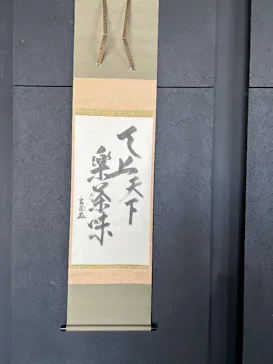 天上天下
楽茶味